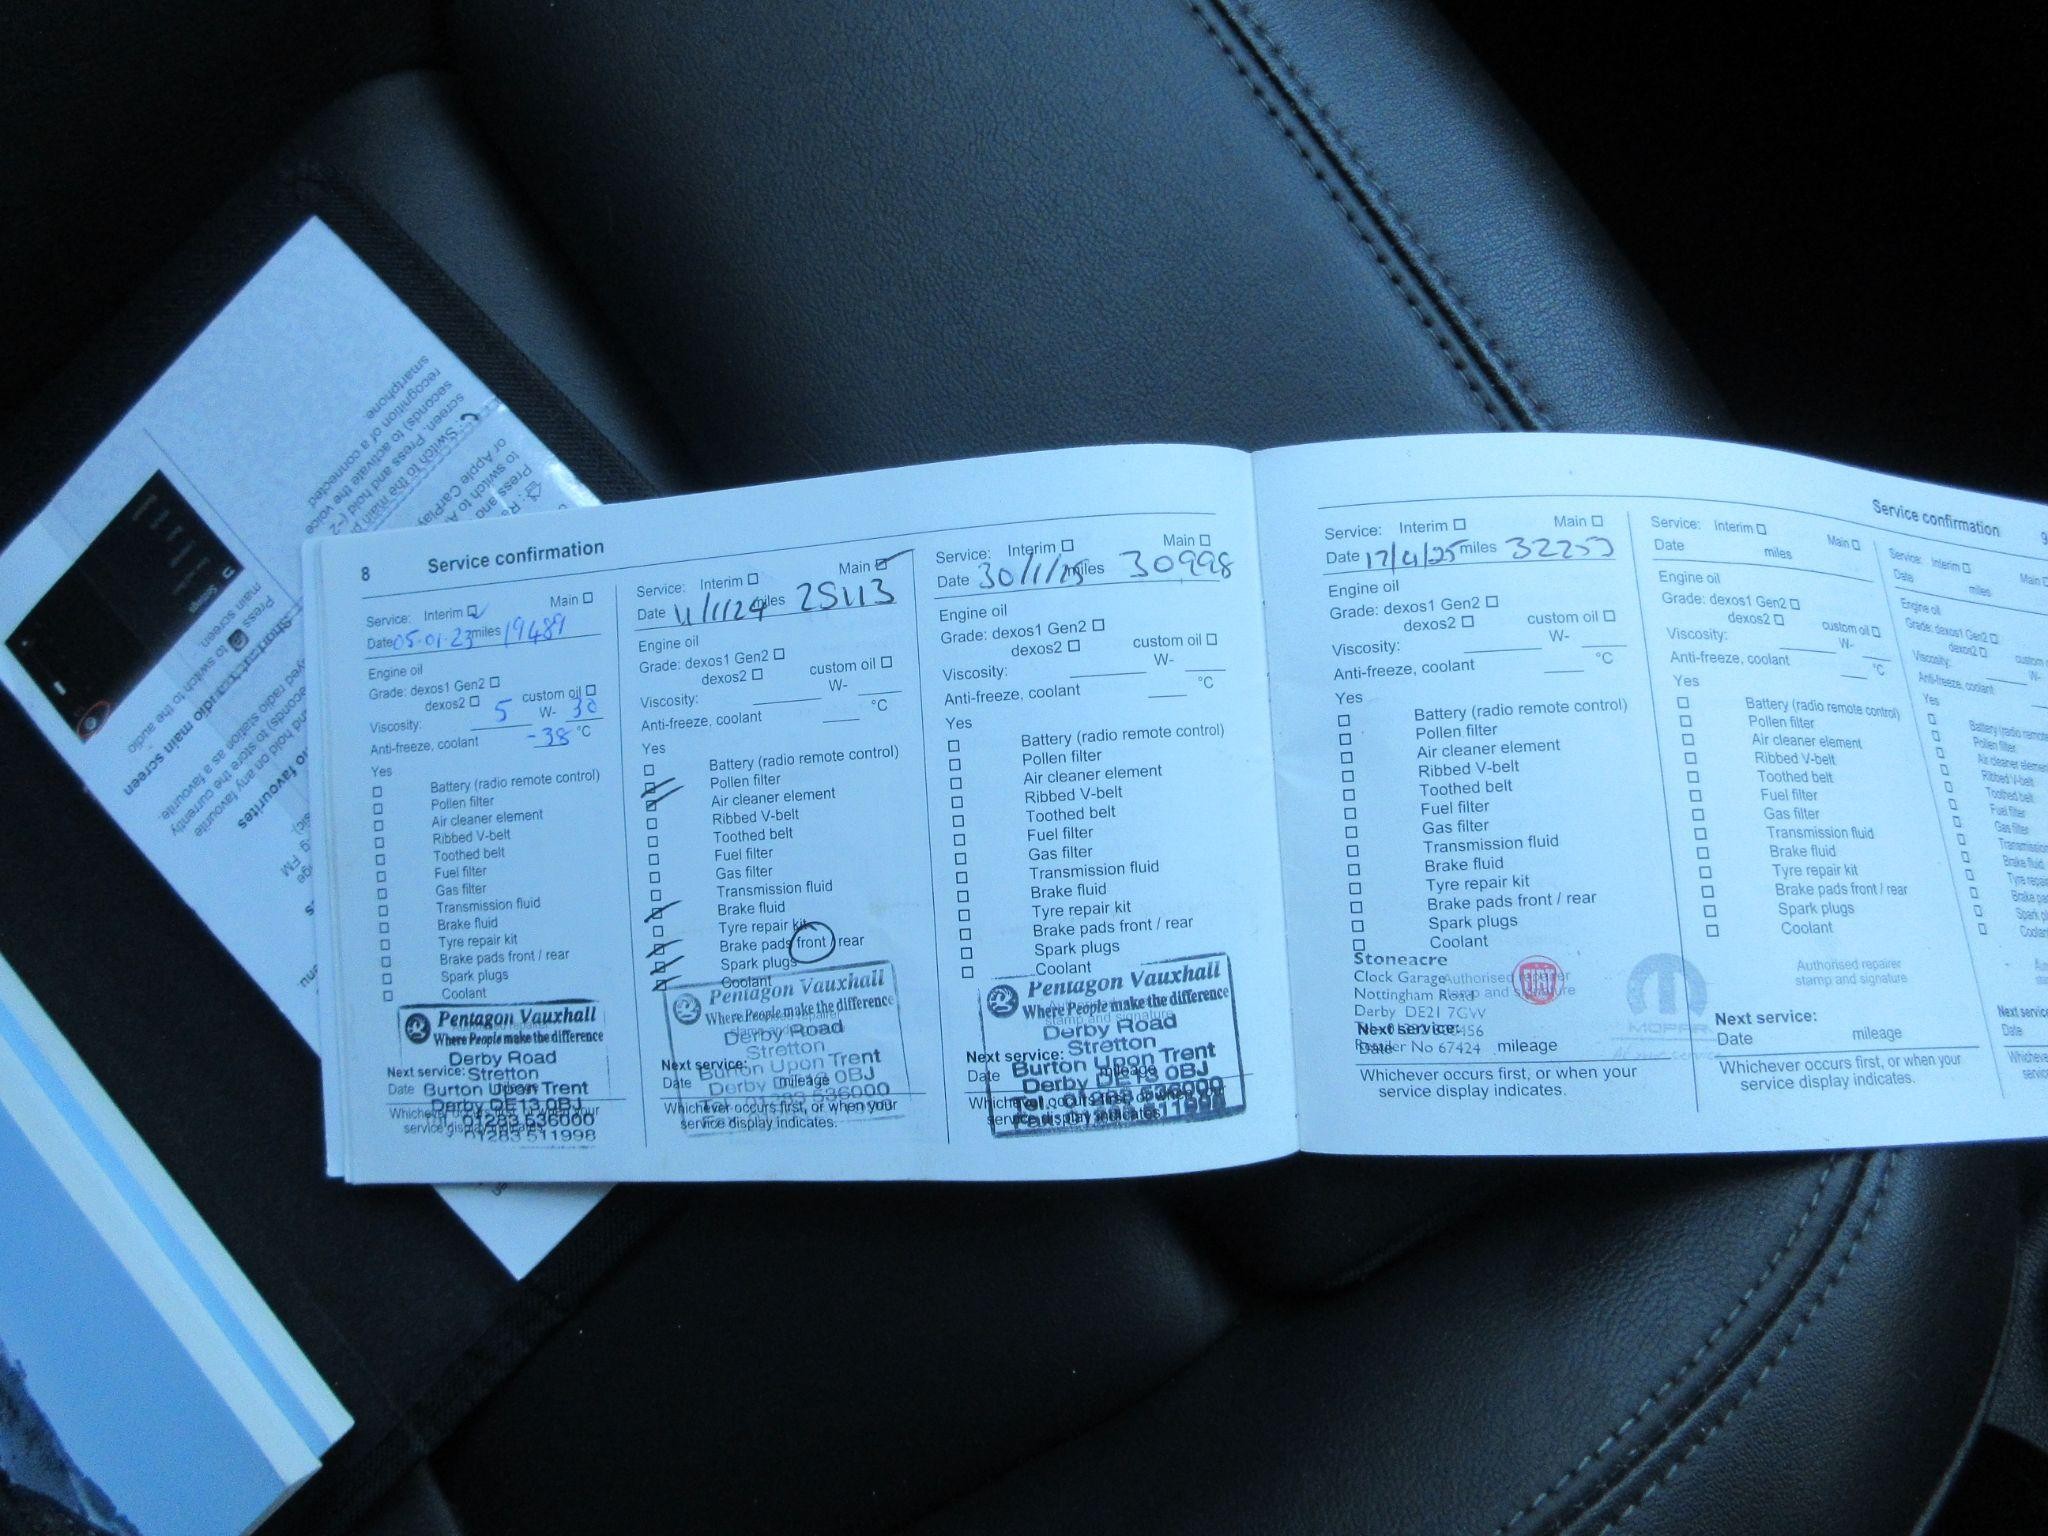 8 Service confirmation
Service: Interim Main
Date 05.01.23 miles 19489
Engine oil
Grade: dexos1 Gen2
dexos2 custom oil
Viscosity: 5 W- 30
Anti-freeze, coolant -38 °C
Yes
Battery (radio remote control)
Pollen filter
Air cleaner element
Ribbed V-belt
Toothed belt
Fuel filter
Gas filter
Transmission fluid
Brake fluid
Tyre repair kit
Brake pads front / rear
Spark plugs
Coolant
Pentagon Vauxhall
Where People make the difference
Derby Road
Next service: Stretton
Date Burton Upon Trent
Derby DE13 0BJ
01283 536000
01283 511998
Service: Interim Main
Date 11/1/24 miles 25113
Engine oil
Grade: dexos1 Gen2
dexos2 custom oil
Viscosity: W-
Anti-freeze, coolant °C
Yes
Battery (radio remote control)
Pollen filter
Air cleaner element
Ribbed V-belt
Toothed belt
Fuel filter
Gas filter
Transmission fluid
Brake fluid
Tyre repair kit
Brake pads front / rear
Spark plugs
Coolant
Pentagon Vauxhall
Where People make the difference
Derby Road
Stretton
Next service: Burton Upon Trent
Date mileage Derby 0BJ
01283 536000
Whichever occurs first, or when your
service display indicates.
Service: Interim Main
Date 30/1/25 miles 30998
Engine oil
Grade: dexos1 Gen2
dexos2 custom oil
Viscosity: W-
Anti-freeze, coolant °C
Yes
Battery (radio remote control)
Pollen filter
Air cleaner element
Ribbed V-belt
Toothed belt
Fuel filter
Gas filter
Transmission fluid
Brake fluid
Tyre repair kit
Brake pads front / rear
Spark plugs
Coolant
Pentagon Vauxhall
Where People make the difference
Derby Road
Next service: Stretton
Date Burton Upon Trent
Derby DE13 0BJ
Tel. 01283 536000
511998
Service confirmation 9
Service: Interim Main
Date 17/4/25 miles 32253
Engine oil
Grade: dexos1 Gen2
dexos2 custom oil
Viscosity: W-
Anti-freeze, coolant °C
Yes
Battery (radio remote control)
Pollen filter
Air cleaner element
Ribbed V-belt
Toothed belt
Fuel filter
Gas filter
Transmission fluid
Brake fluid
Tyre repair kit
Brake pads front / rear
Spark plugs
Coolant
Stoneacre
Clock Garage Authorised repairer
Nottingham Road stamp and signature
FIAT
MOPAR
Derby DE21 7GW
Next service:
Date mileage
No 67424
Whichever occurs first, or when your
service display indicates.
Service: Interim Main
Date miles
Engine oil
Grade: dexos1 Gen2
dexos2 custom oil
Viscosity: W-
Anti-freeze, coolant °C
Yes
Battery (radio remote control)
Pollen filter
Air cleaner element
Ribbed V-belt
Toothed belt
Fuel filter
Gas filter
Transmission fluid
Brake fluid
Tyre repair kit
Brake pads front / rear
Spark plugs
Coolant
Authorised repairer
stamp and signature
Next service:
Date mileage
Whichever occurs first, or when your
service display indicates.
Service: Interim Main
Date miles
Engine oil
Grade: dexos1 Gen2
dexos2 custom
Viscosity:
Anti-freeze, coolant
Yes
Battery (radio remote
Pollen filter
Air cleaner element
Ribbed V-belt
Toothed belt
Fuel filter
Gas filter
Transmission
Brake fluid
Tyre repair
Brake
Spark
Next service:
Date
service
screen. Press and hold (~2
seconds) to activate the voice
recognition of a connected
smartphone.
or Apple CarPlay
Shortcut audio main screen
Press to switch to the audio
main screen.
Settings